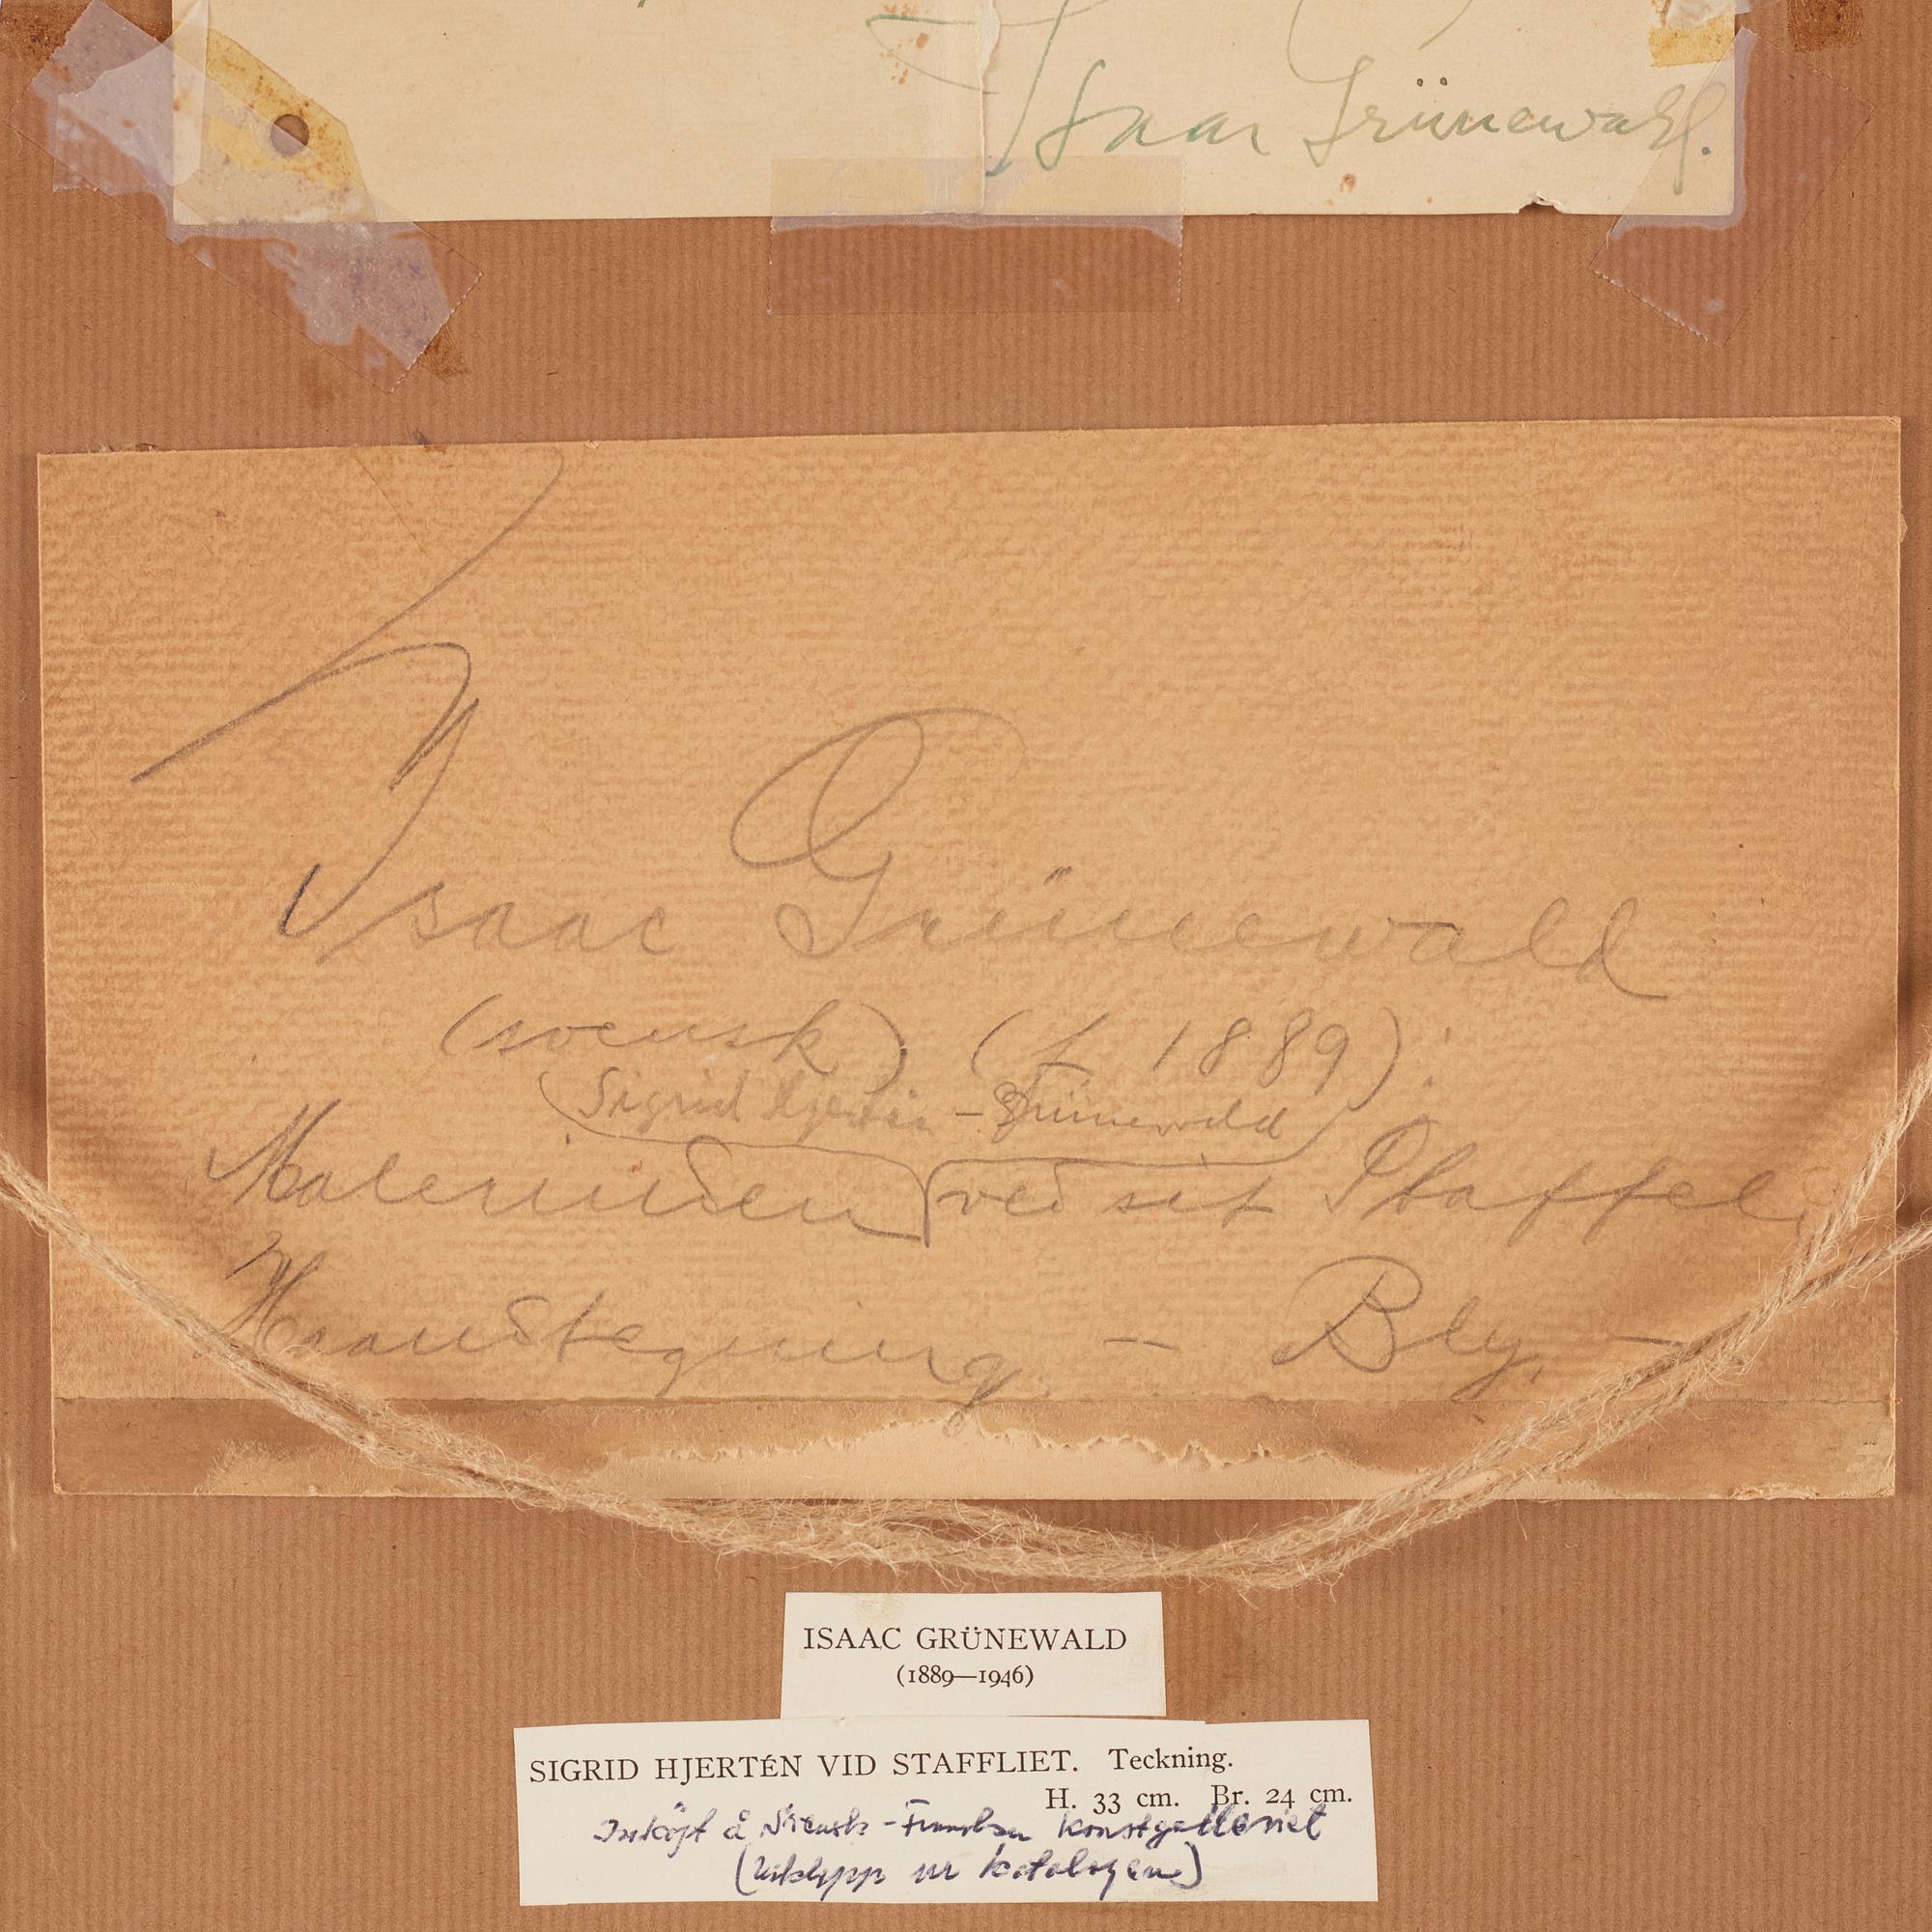 Isaac Grünewald.
Isaac Grünewald
(svensk) (f 1889):
Sigrid Hjertén-Grünewald
Malerinden ved sit Staffeli
Haandtegning - Bly. -
ISAAC GRÜNEWALD
(1889—1946)
SIGRID HJERTÉN VID STAFFLIET. Teckning.
H. 33 cm. Br. 24 cm.
Inköpt å Svensk-Franska Konstgalleriet
(Utklipp ur katalogen)